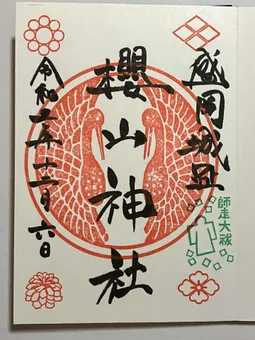 盛岡城址
師走大祓
櫻山神社
令和二年十二月六日